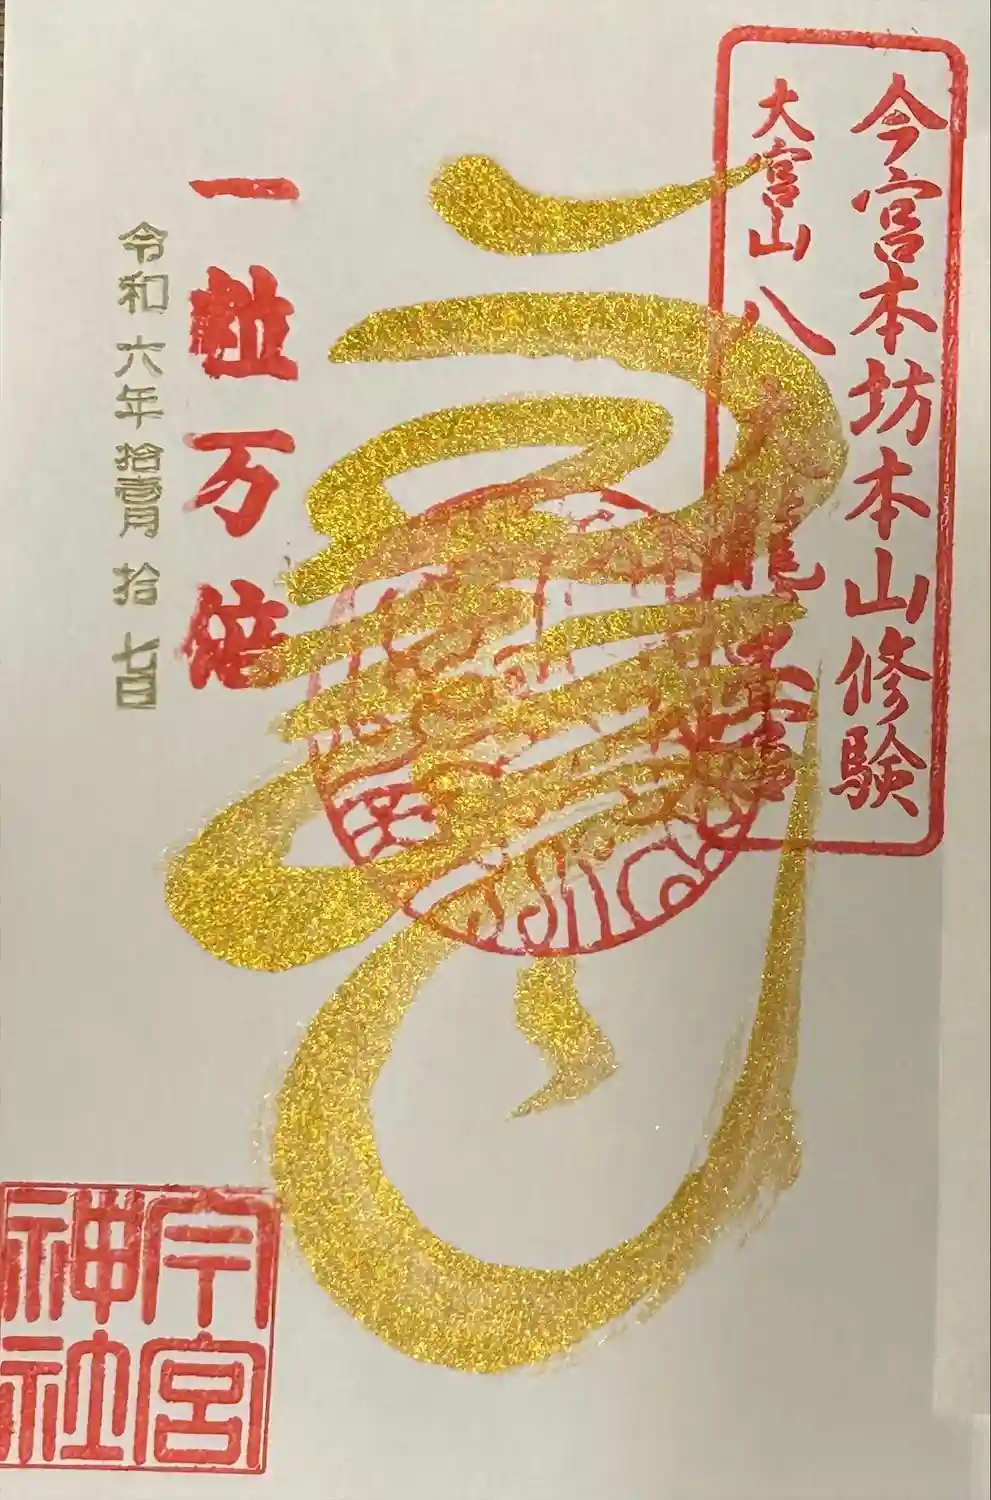 今宮本坊本山修験
大宮山 八大龍王宮
一粒万倍
令和六年拾壹月拾七日
今宮神社